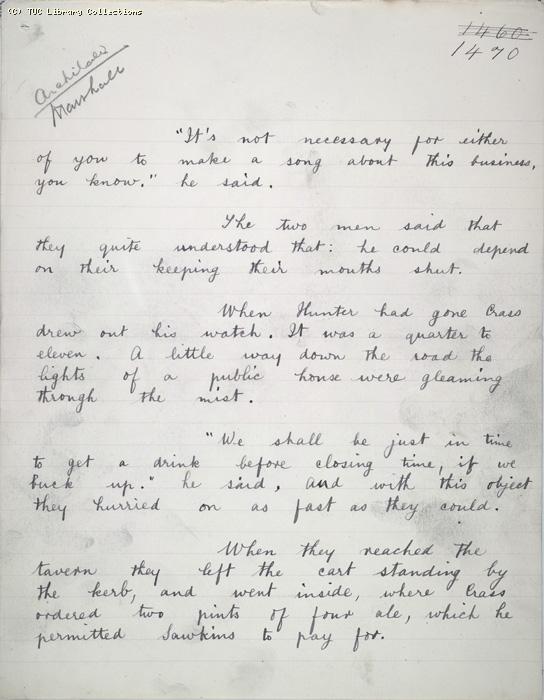 (C) TUC Library Collections
1460
1470
Marshall
"It's not necessary for either
of you to make a song about this business,
you know." he said.
The two men said that
they quite understood that: he could depend
on their keeping their mouths shut.
When Hunter had gone Crass
drew out his watch. It was a quarter to
eleven. A little way down the road the
lights of a public house were gleaming
through the mist.
"We shall be just in time
to get a drink before closing time, if we
buck up." he said, and with this object
they hurried on as fast as they could.
When they reached the
tavern they left the cart standing by
the kerb, and went inside, where Crass
ordered two pints of four ale, which he
permitted Sawkins to pay for.